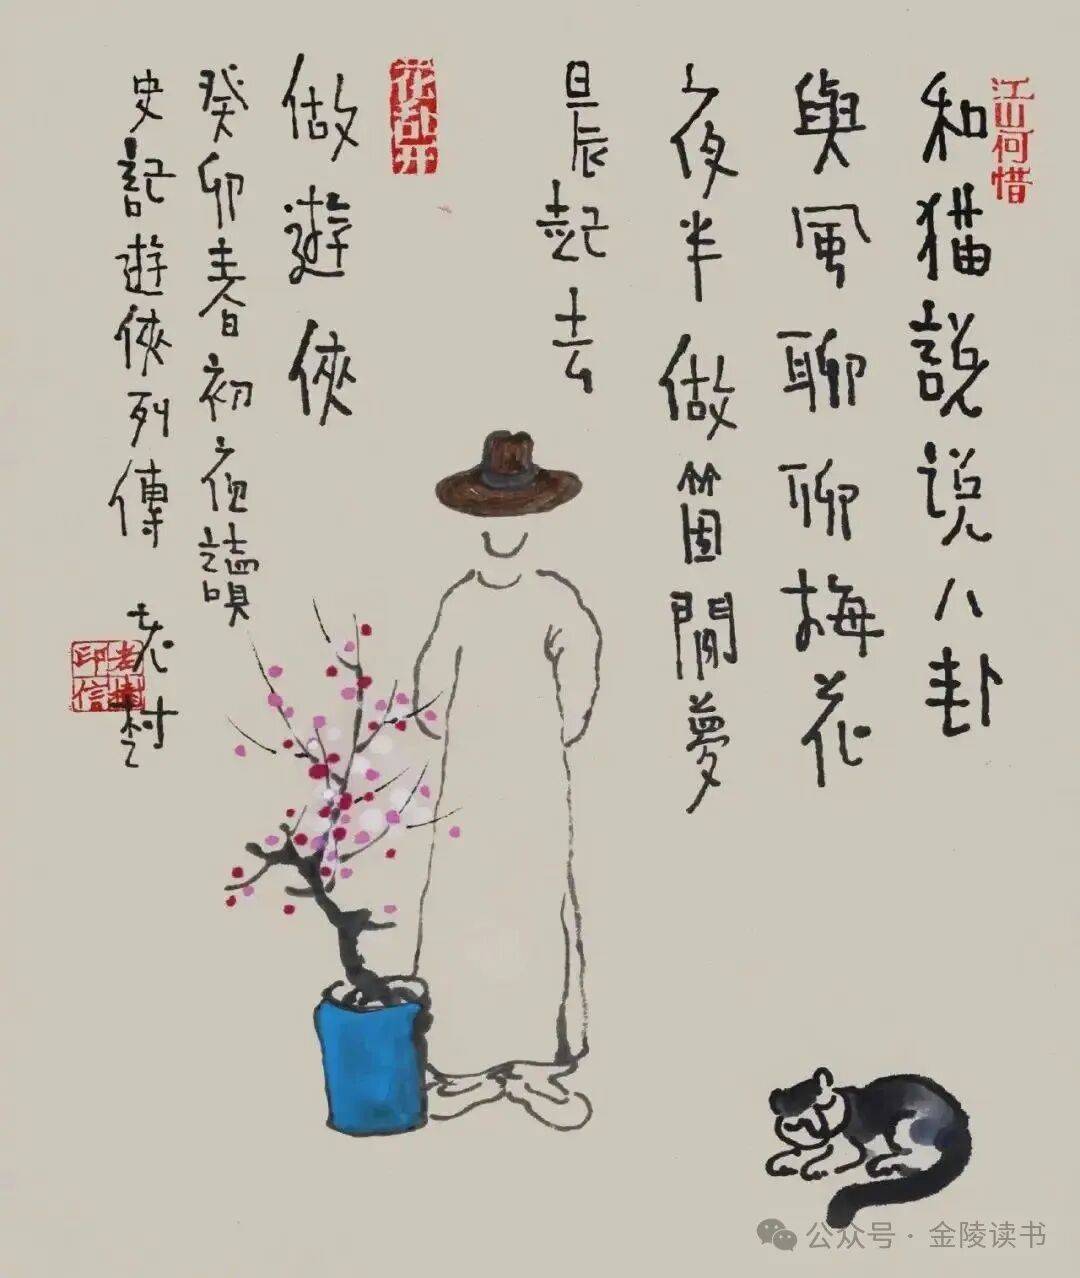 江山何惜
和猫説说八卦
與風聊聊梅花
夜半做箇閒夢
晨起去
花乱开
做遊俠
癸卯春初夜讀
史記遊俠列傳 老树
老樹印信
公众号 · 金陵读书